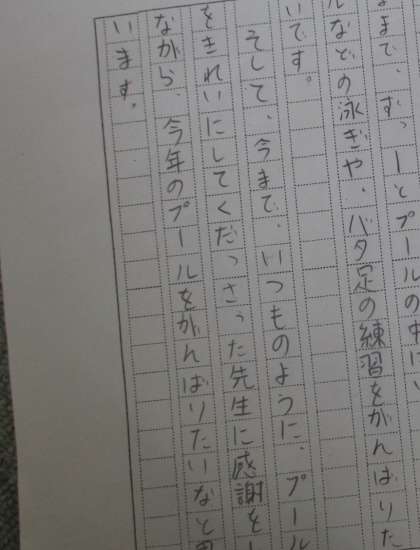 まで、ずっーとプールの中に
ルなどの泳ぎや、バタ足の練習をがんばりた
いです。
そして、今まで、いつものように、プール
をきれいにしてくだっさった先生に感謝をし
ながら、今年のプールをがんばりたいなと思
います。